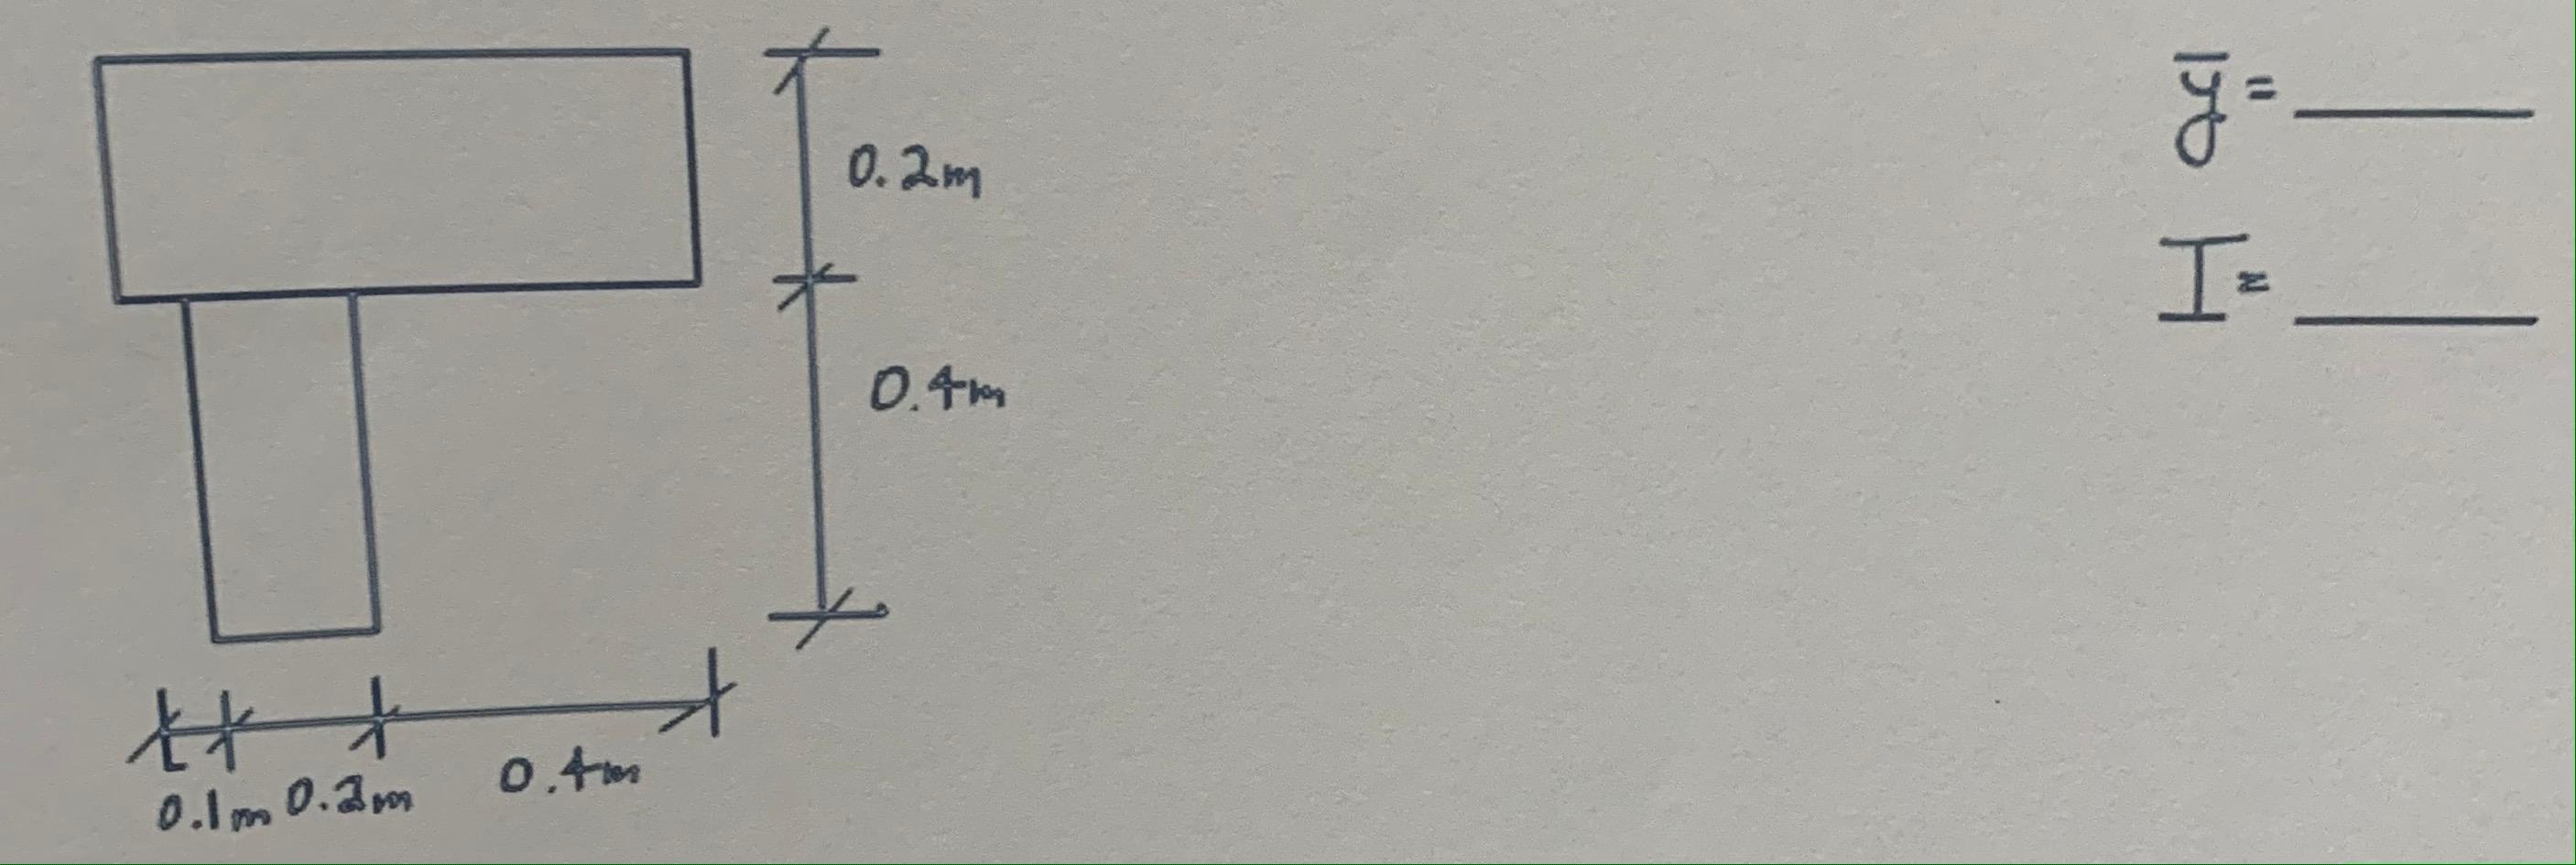 0.2m
0.4m
0.1m 0.2m 0.4m
ȳ=
I=